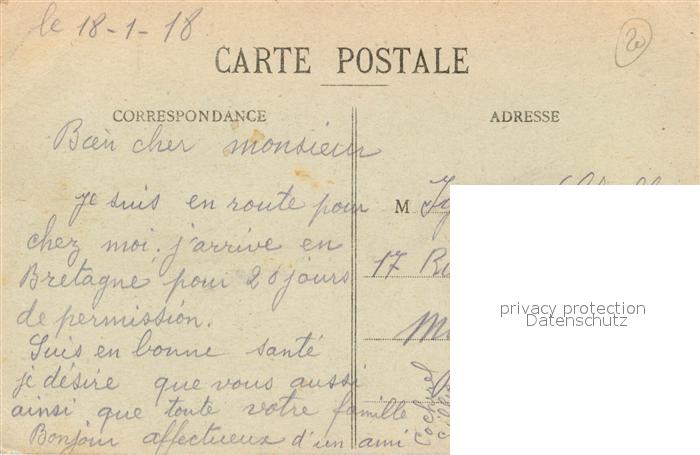 le 18-1-18
CARTE POSTALE
CORRESPONDANCE
ADRESSE
Bien cher monsieur
je suis en route pour
chez moi. j'arrive en
Bretagne pour 20 jours
de permission.
Suis en bonne santé
je désire que vous aussi
ainsi que toute votre famille
Bonjour affectueux d'un ami
M
17
privacy protection
Datenschutz